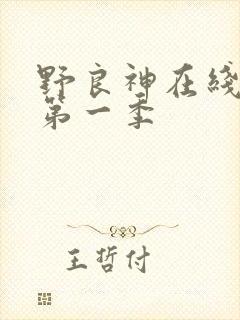 野良神在綫
第一季
王哲付